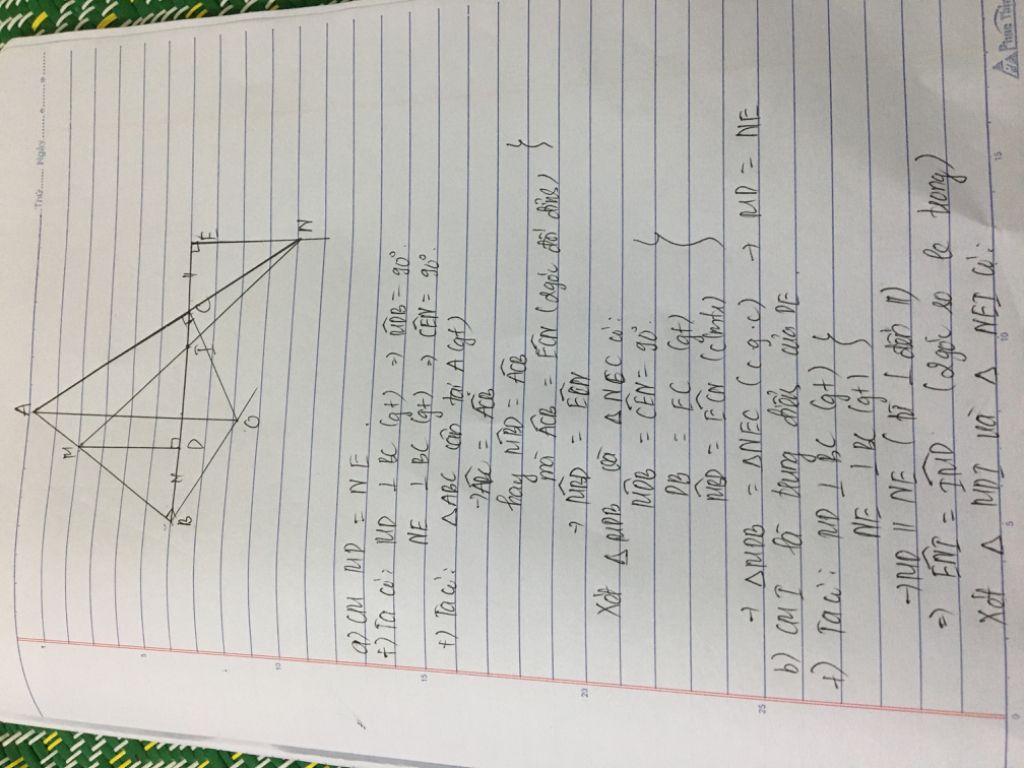 Thứ....... Ngày.......
A
M
B
H
D
I
C
E
N
O
a) CM MD = NE
+) Ta có: MD ⊥ BC (gt) => MDB = 90°
NE ⊥ BC (gt) => CEN = 90°
+) Ta có: △ABC cân tại A (gt)
→ ABC = ACB
hay MBD = ACB
mà ACB = ECN (2 góc đối đỉnh) }
→ MBD = ECN
Xét △MDB và △NEC có:
MDB = CEN = 90°
DB = EC (gt)
MBD = ECN (cmtx) }
→ △MDB = △NEC (c g.c) → MD = NE
b) CM I là trung điểm của DE
+) Ta có: MD ⊥ BC (gt) }
NE ⊥ BC (gt)
→ MD // NE (từ ⊥ đến //)
=> ENI = IMD (2 góc so le trong)
Xét △ MDI và △ NEI có: